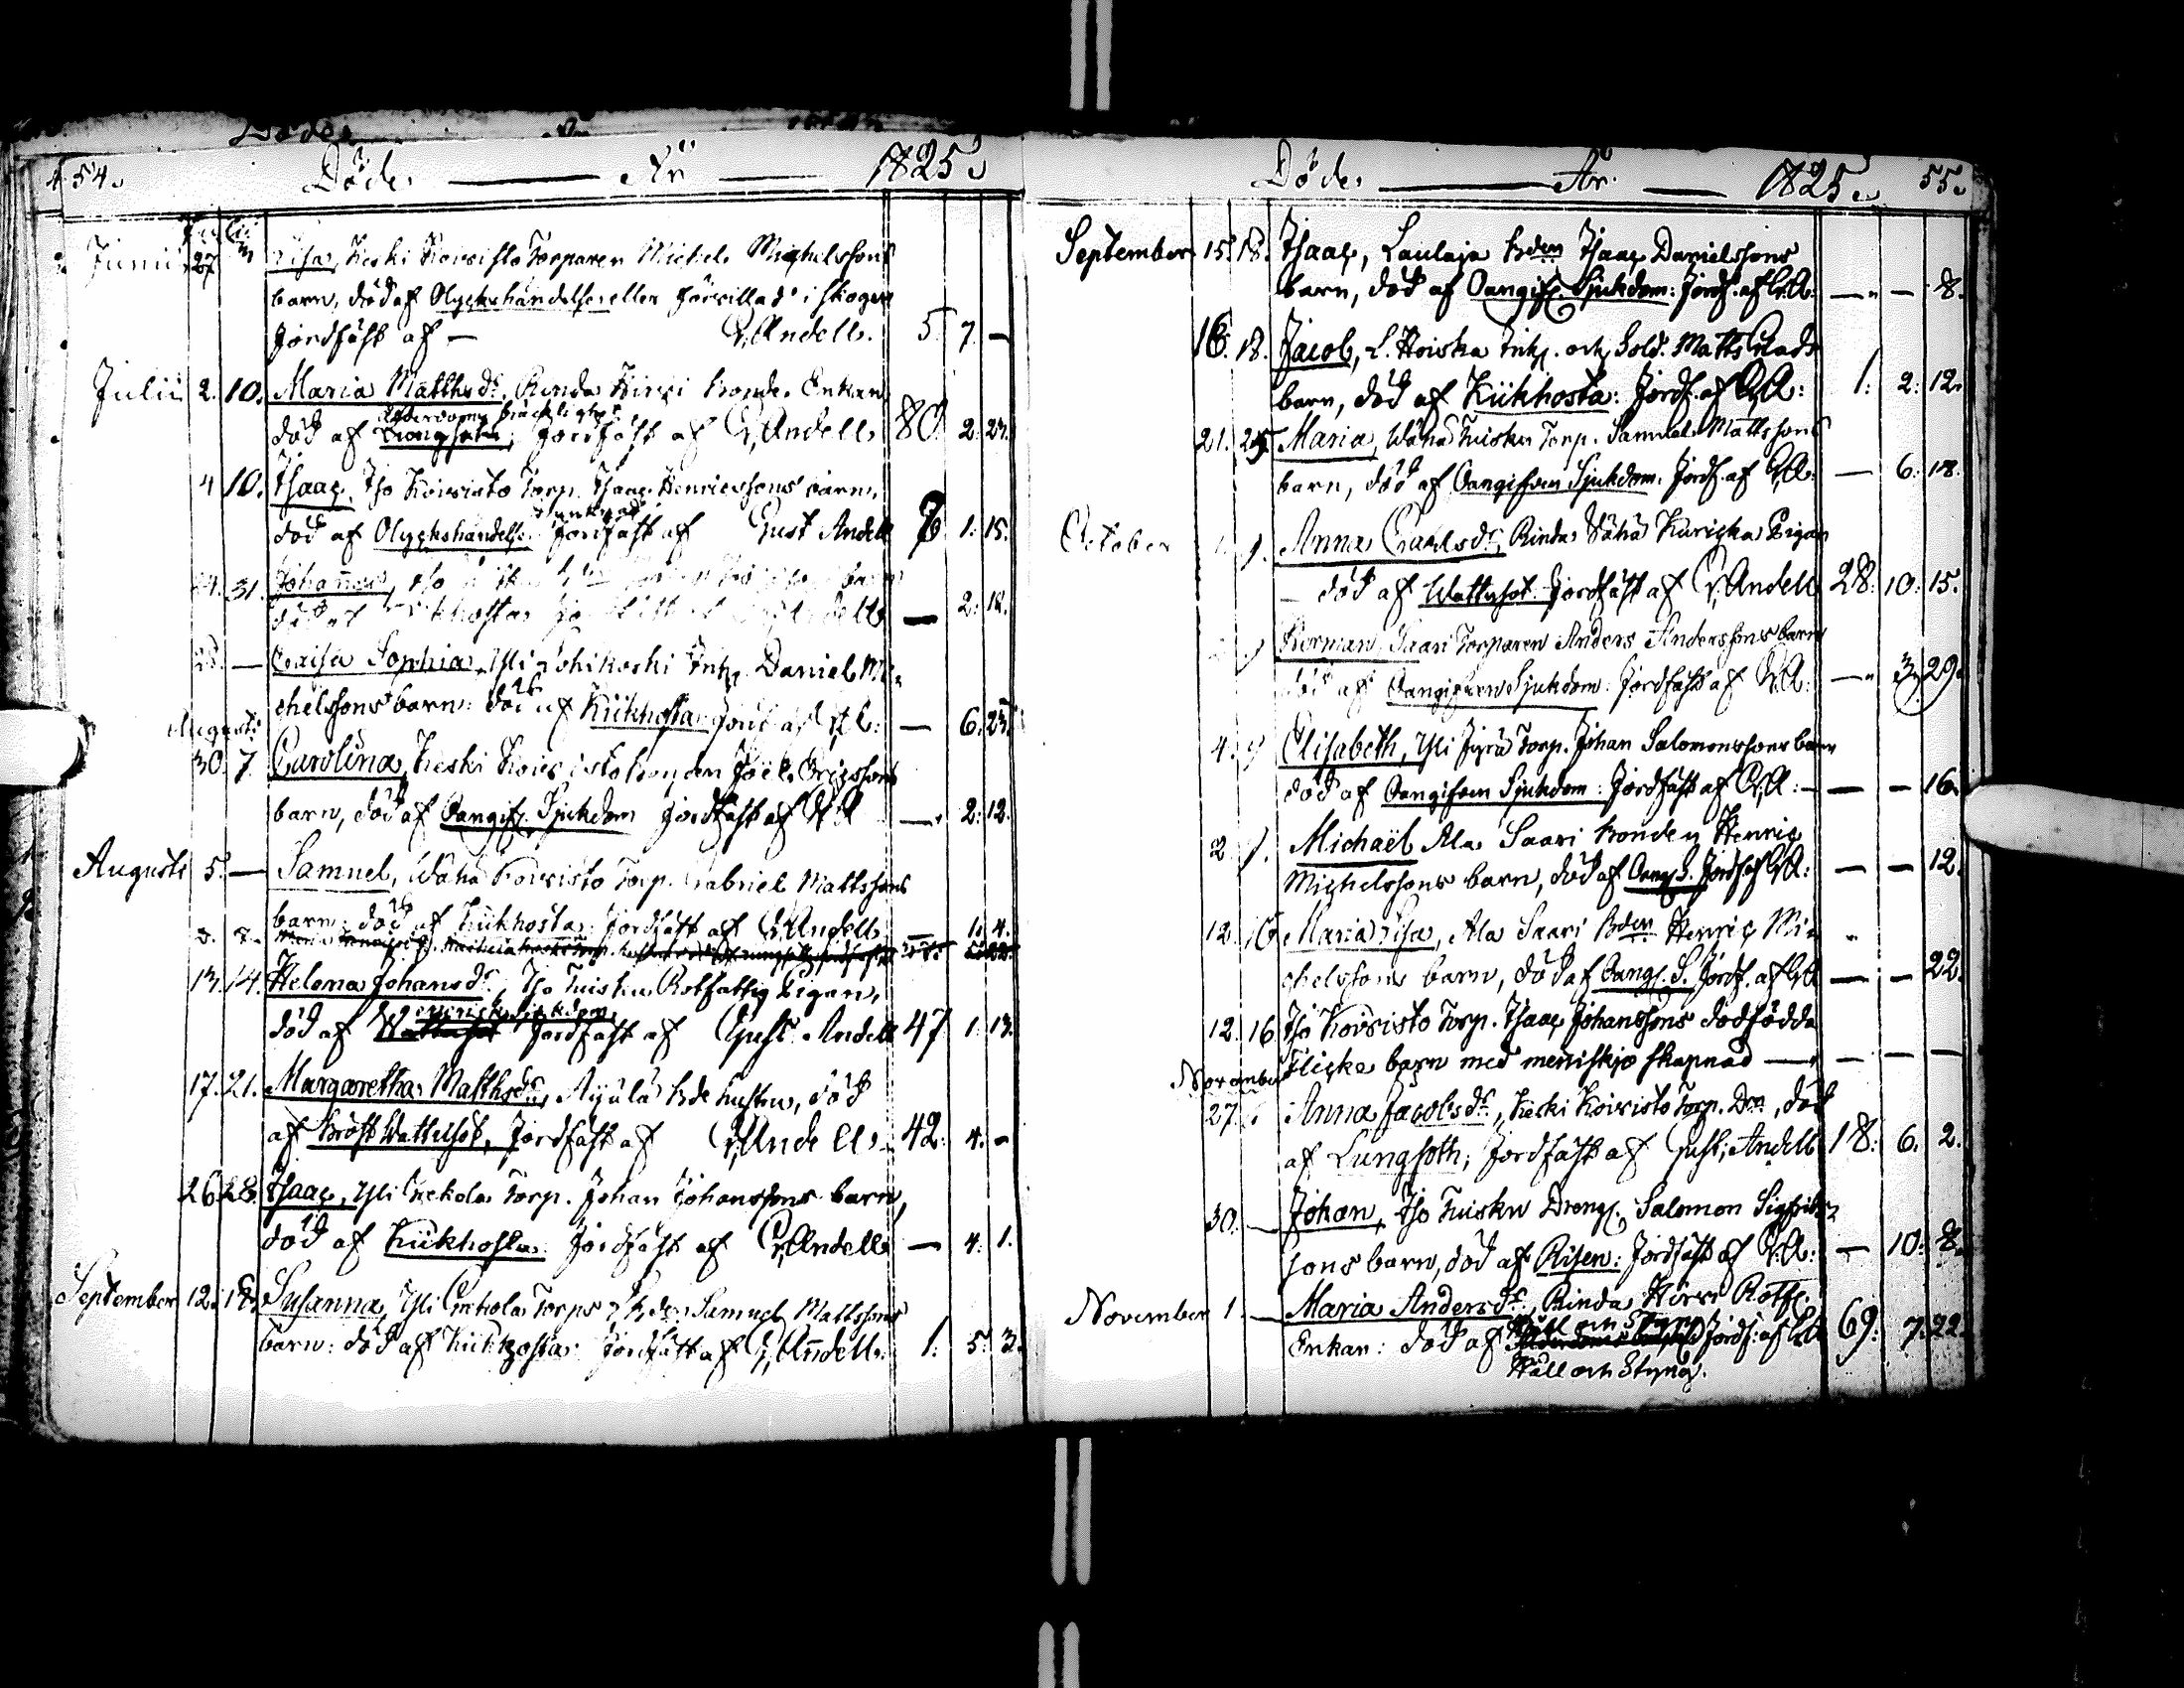 54. Döde. År 1825.
Julii
Junii 27. 3 Lisa, Keski Koivisto Torparen Michel Michelssons
barn, död af Olyckshändelse eller förvillad i skogen
Jordfäst af — G. Andell. 5. 7. —
Julii 2. 10. Maria Matthsdr, Rinda Hirvi bonde Enkan
Ålderdoms bräcklighet
död af Jordfäst af G. Andell. 80. 2. 27.
4 10. Isaac, Iso Koivisto Torp. Isaac Henricssons barn,
död af Olyckshändelse Jordfäst af Gust. Andell 1. 15.
24. 31. Johannes, Iso barn
död af Kikhosta Andell — 2. 12.
25. — Lovisa Sophia, Yli Inh. Daniel Mi-
chelssons barn: död af Kikhosta: Jord. af G. A: — 6. 25.
Augusti
30. 7. Carolina, Keski Koivisto bonden Joël Ericssons
barn, död af Oangif. Sjukdom Jordfäst af G. A —. 2. 12.
Augusti 5. — Samuel, Wähä Koivisto Torp. Gabriel Mattssons
barn: död af Kikhosta: Jordfäst af G. Andell. — 1. 4.
8. 8.
13. 14. Helena Johansdr, Iso Tuisku Rotfattig Pigan,
död af Jordfäst af Gust. Andell 47 1. 13.
17. 21. Margaretha Matthsdr, Äyälä bde hustru, död
af Bröst Wattusot, Jordfäst af G. Andell. 42. 4. -
26 28. Isaac, Yli Torp. Johan Johanssons barn,
död af Kikhosta: Jordfäst af G. Andell — 4. 1.
September 12. 18. Susanna, Yli Torps Samuel Mattssons
barn: död af Kikhosta: Jordfäst af G. Andell. 1. 5. 3.
Döde. År. 1825. 55.
September 15. 18. Isaac, Laulaja Bden Isaac Danielssons
barn, död af Oangif. Sjukdom: Jordf. af G. A: — — 8.
16. 18. Jacob, L. Hoiska Inh. och Sold. Matts
barn, död af Kikhosta: Jordf. af G. A: 1. 2. 12.
21. 25. Maria, Wähä Tuisku Torp. Samuel Mattssons
barn, död af Oangifven Sjukdom. Jordf. af G. A: — 6. 18.
October 9. Anna Carlsdr, Rinda Wähä Kuricka Pigan
död af Wattusot. Jordfäst af G. Andell 28. 10. 15.
9 Herman, Saari Torparen Anders Anderssons barn
död af Oangifven Sjukdom: Jordfäst af G. A: — 3. 29.
4. 9 Elisabeth, Yli Jyrä Torp. Johan Salomonssons barn
död af Oangifven Sjukdom: Jordfäst af G. A: — — — 16.
2. 9. Michaël Ala Saari bonden Henric
Michelssons barn, död af Oang. S. Jordf. af G. A: — — 12.
12. 16 Maria Lisa, Ala Saari Bden Henric Mi-
chelssons barn, död af Oangf. S. Jordf. af G. A — — 22.
12. 16 Iso Koivisto Torp. Isaac Johanssons dödfödda
Flicka barn med menniskjo skapnad — — — —
November
27. Anna Jacobsdr, Keski Koivisto Torp. Drn, död
af Lungsoth; Jordfäst af Gust. Andell 18. 6. 2.
30. — Johan, Iso Tuisku Drengs. Salomon Sigfrids-
sons barn, död af Risen: Jordfäst af G. A: — 10. 8.
November 1. — Maria Andersdr, Rinda Hirvi Rotf.
Håll och Styng
Enkan: död af Jordf. af G. A 69. 7. 22.
Håll och Styng.